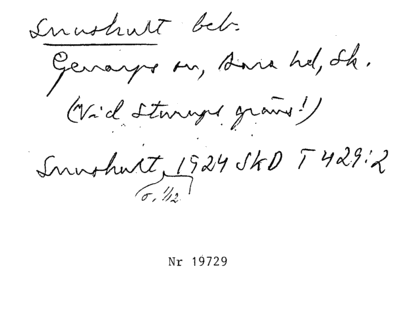 Snushult beb.
Genarps sn, Bara hd, Sk.
(Vid Sturups gräns!)
Snushult, 1924 SkD T 429:2
σ. 1/12
Nr 19729